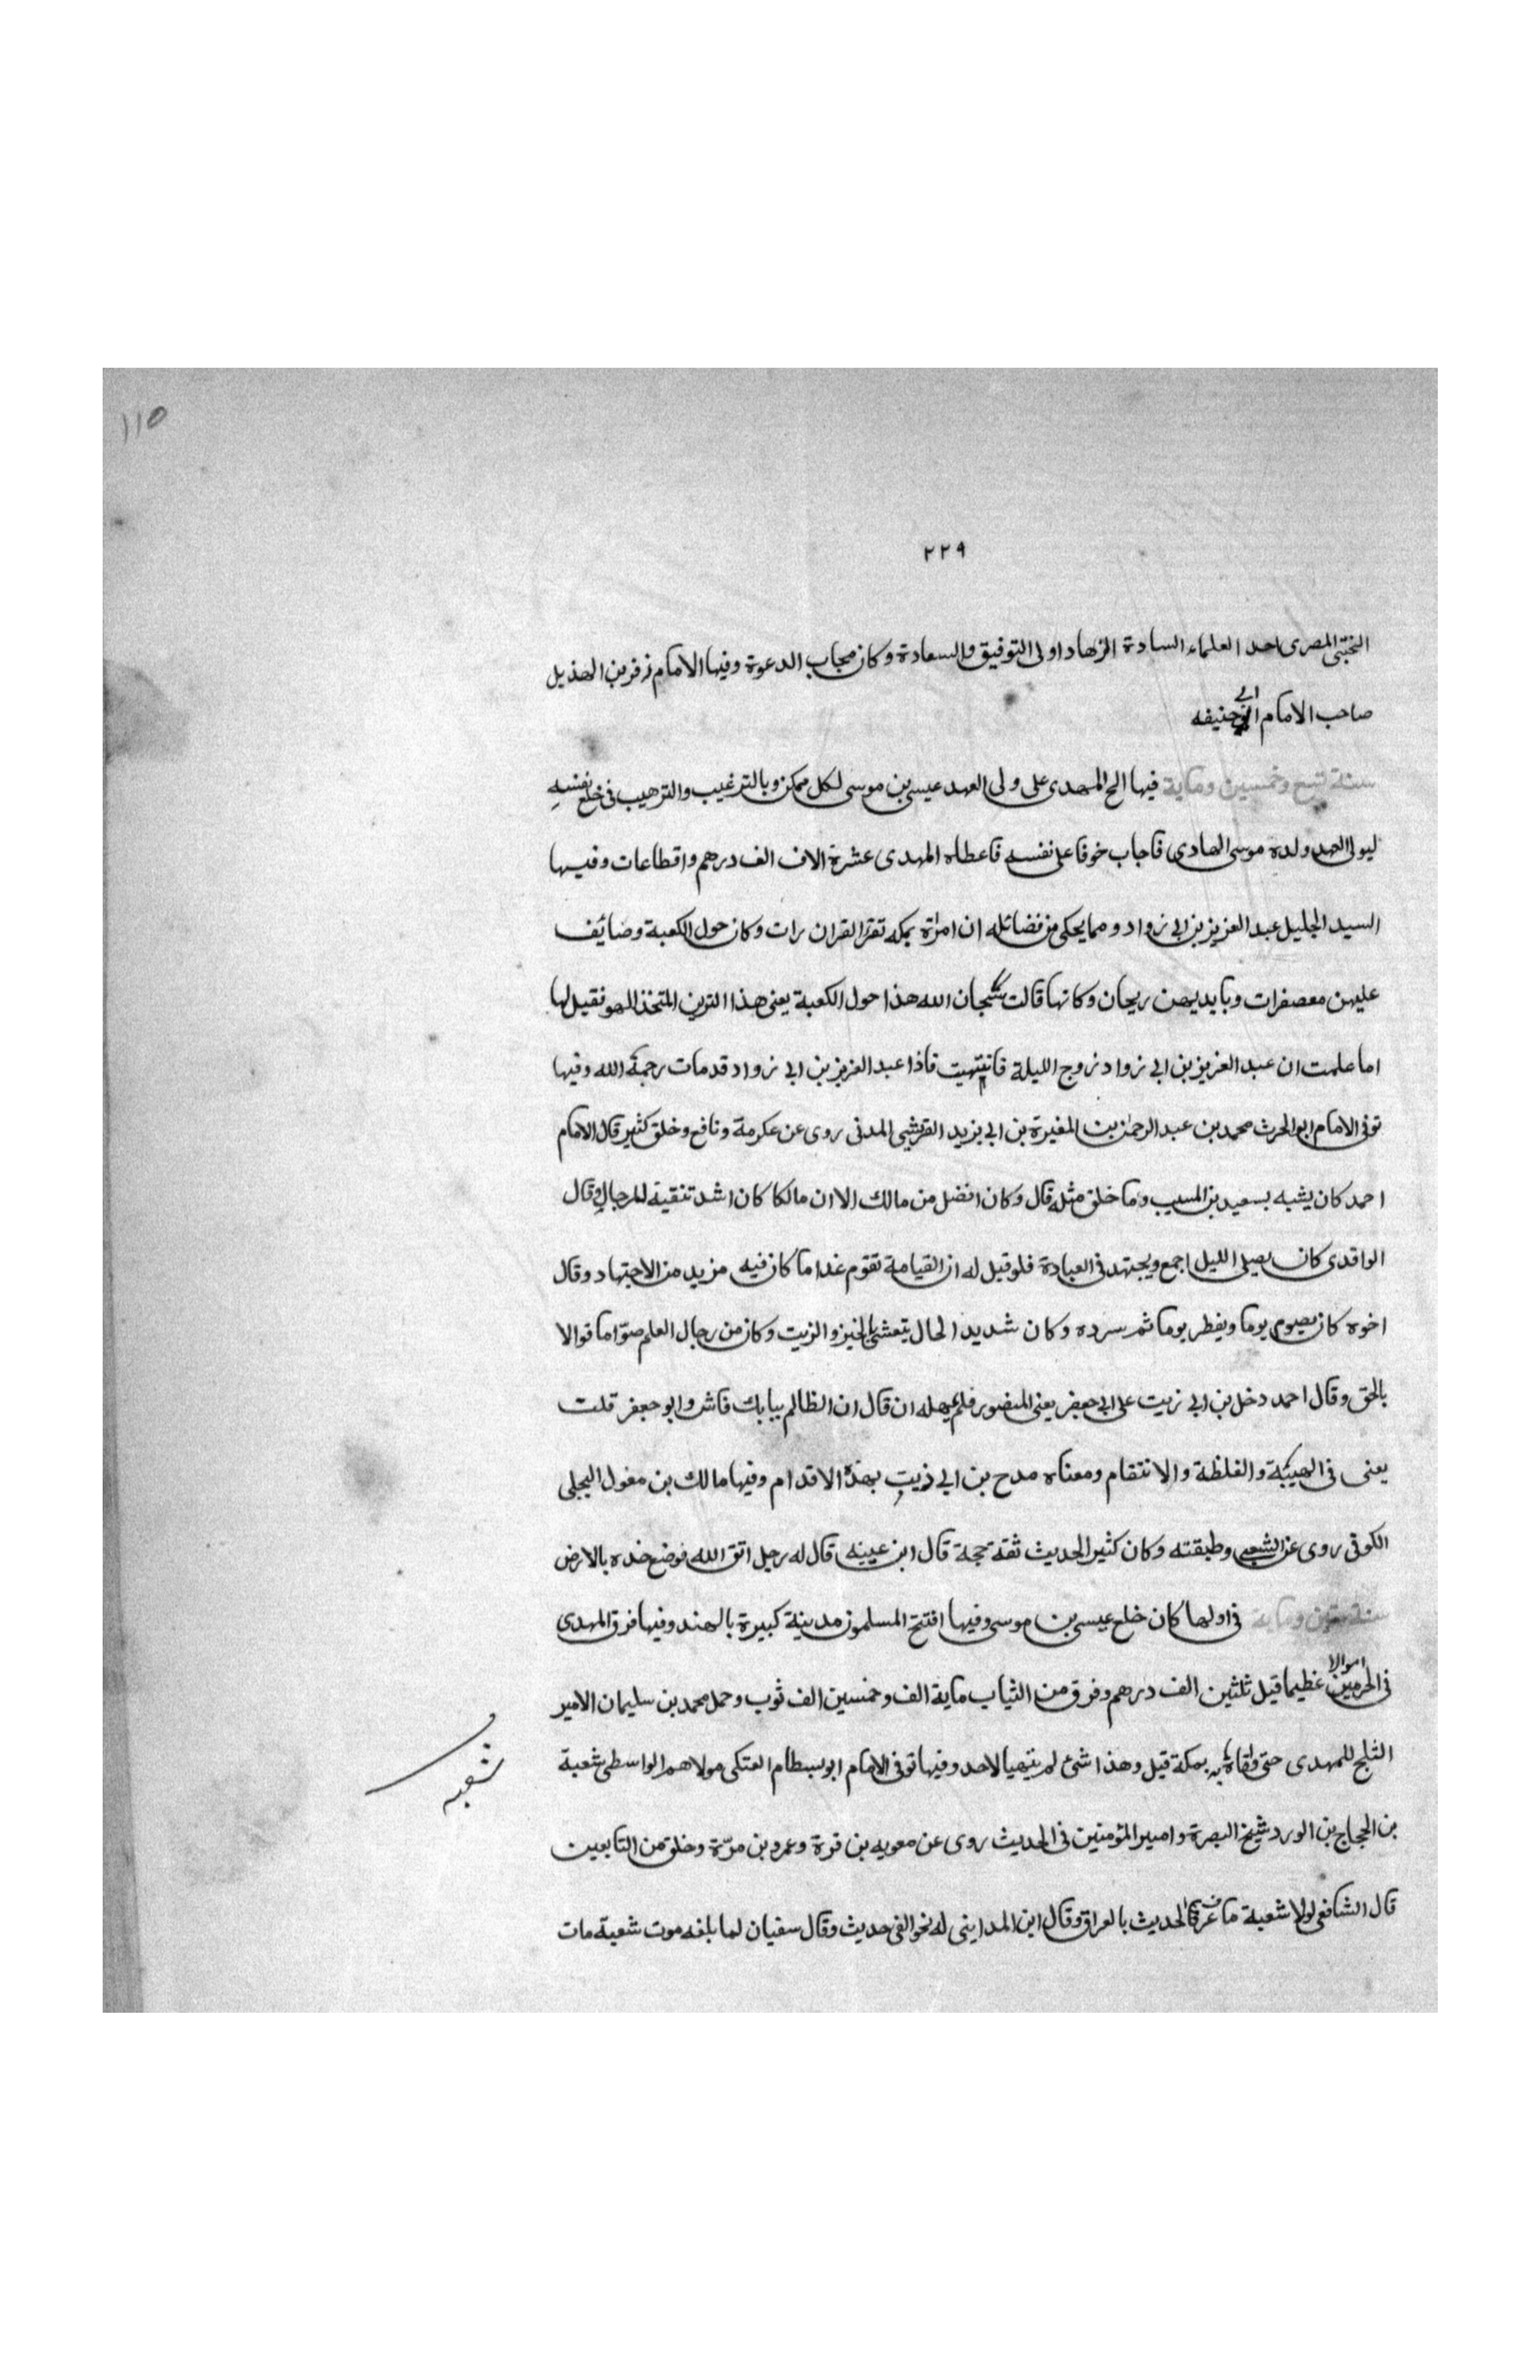 ١١٥
٢٢٩
التجيبى المصرى احد العلماء السادة الزهاد اولى التوفيق والسعادة وكان مجاب الدعوة وفيها الامام زفر بن الهذيل
صاحب الامام ابى حنيفه
سنة تسع وخمسين وماية فيها الح المهدى على ولى العهد عيسى بن موسى لكل ممكن وبالترغيب والترهيب فى خلع نفسه
ليولى العهد ولده موسى الهادى فاجاب خوفا على نفسه فاعطاه المهدى عشرة الاف الف درهم واقطاعات وفيها
السيد الجليل عبد العزيز بن ابى رواد ومما يحكى من فضائله ان امراة بمكه تقرا القران رات وكان حول الكعبة وصائف
عليهن معصفرات وبايديهن ريحان وكانها قالت سبحان الله هذا حول الكعبة يعنى هذا التزين المتخذ للهو فقيل لها
اما علمت ان عبد العزيز بن ابى رواد زوج الليلة فانتبهت فاذا عبد العزيز بن ابى رواد قد مات رحمة الله وفيها
توفى الامام ابو الحرث محمد بن عبد الرحمن بن المغيرة بن ابى يزيد القرشى المدنى روى عن عكرمة ونافع وخلق كثير قال الامام
احمد كان يشبه بسعيد بن المسيب وما خلق مثله قال وكان افضل من مالك الا ان مالكا كان اشد تنقية للرجال وقال
الواقدى كان يصلى الليل اجمع ويجتهد فى العبادة فلو قيل له ان القيامة تقوم غدا ما كان فيه مزيد من الاجتهاد وقال
اخوه كان يصوم يوما ويفطر يوما ثم سرده وكان شديد الحال يتعشى بالخبز والزيت وكان من رجال العلم صوّاما قوالا
بالحق وقال احمد دخل بن ابى زيت على ابى جعفر يعنى المنصور فلم يمهله ان قال ان الظالم ببابك فاش وابو جعفر قلت
يعنى فى الهيبة والغلظة والانتقام ومعناه مدح بن ابى ذيب بهذه الاقدام وفيها مالك بن مغول البجلى
الكوفى روى عن الشعبى وطبقته وكان كثير الحديث ثقة حجة قال ابن عيينه قال له رجل اتق الله فوضع خده بالارض
سنة ستين وماية فى اولها كان خلع عيسى بن موسى وفيها افتتح المسلمون مدينة كبيرة بالهند وفيها فرق المهدى
فى الحرمين اموالا عظيما قيل ثلثين الف درهم وفرق من الثياب ماية الف وخمسين الف ثوب وحمل محمد بن سليمان الامير
الثلج للمهدى حتى وافاه به بمكة قيل وهذا شئ لم يتهيا لاحد وفيها توفى الامام ابو بسطام العتكى مولاهم الواسطى شعبة
شعبه
بن الحجاج بن الورد شيخ البصرة وامير المؤمنين فى الحديث روى عن معويه بن قرة وعمرو بن مرّة وخلق من التابعين
قال الشافعى لولا شعبة ما عرف الحديث بالعراق وقال ابن المداينى له نحو الفى حديث وقال سفيان لما بلغه موت شعبة مات